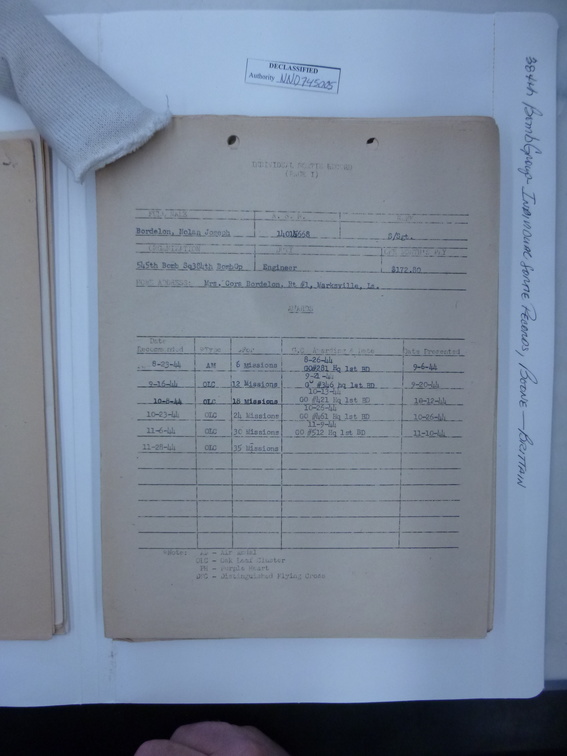 DECLASSIFIED
Authority NND 745005
384th Bomb Group - Individual Sortie Records, Boone - Brittain
INDIVIDUAL SORTIE RECORD
(PAGE I)
FULL NAME A. S. N.
Bordelon, Nolan Joseph S/Sgt.
545th Bomb Sq384th BombGp Engineer $172.80
HOME ADDRESS: Mrs. Cora Bordelon, Rt #1, Marksville, La.
AWARDS
Date
Recommended *Type For Date Presented
8-26-44
8-23-44 AM 6 Missions GO#281 Hq 1st BD 9-6-44
9-16-44 OLC 12 Missions #346 Hq 1st BD 9-20-44
10-13-44
10-8-44 OLC 18 Missions GO #421 Hq 1st BD 10-12-44
10-26-44
10-23-44 OLC 24 Missions GO #461 Hq 1st BD 10-26-44
11-9-44
11-6-44 OLC 30 Missions GO #512 Hq 1st BD 11-10-44
11-28-44 OLC 35 Missions
*Note: AM - Air Medal
OLC - Oak Leaf Cluster
PH - Purple Heart
DFC - Distinguished Flying Cross